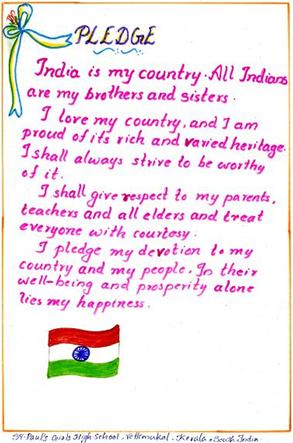 PLEDGE
India is my country. All Indians
are my brothers and sisters.
I love my country, and I am
proud of its rich and varied heritage.
I shall always strive to be worthy
of it.
I shall give respect to my parents,
teachers and all elders and treat
everyone with courtosy.
I pledge my devotion to my
country and my people. In their
well-being and prosperity alone
lies my happiness.
St. Paul's Girls High School, Vettimukal, Kerala, South India